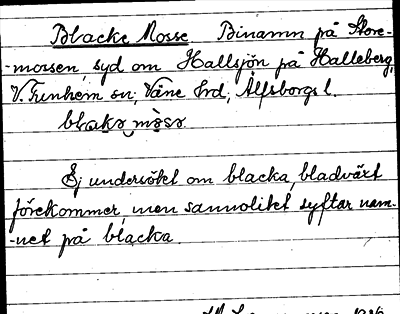 Blacke Mosse Binamn på Store-
-mossen, syd om Hallsjön på Halleberg,
V. Tunhem sn; Väne hrd, Älfsborgs l.
blakə mòsə
Ej undersökt om blacka, bladväxt
förekommer, men sannolikt syftar nam-
-net på blacka.